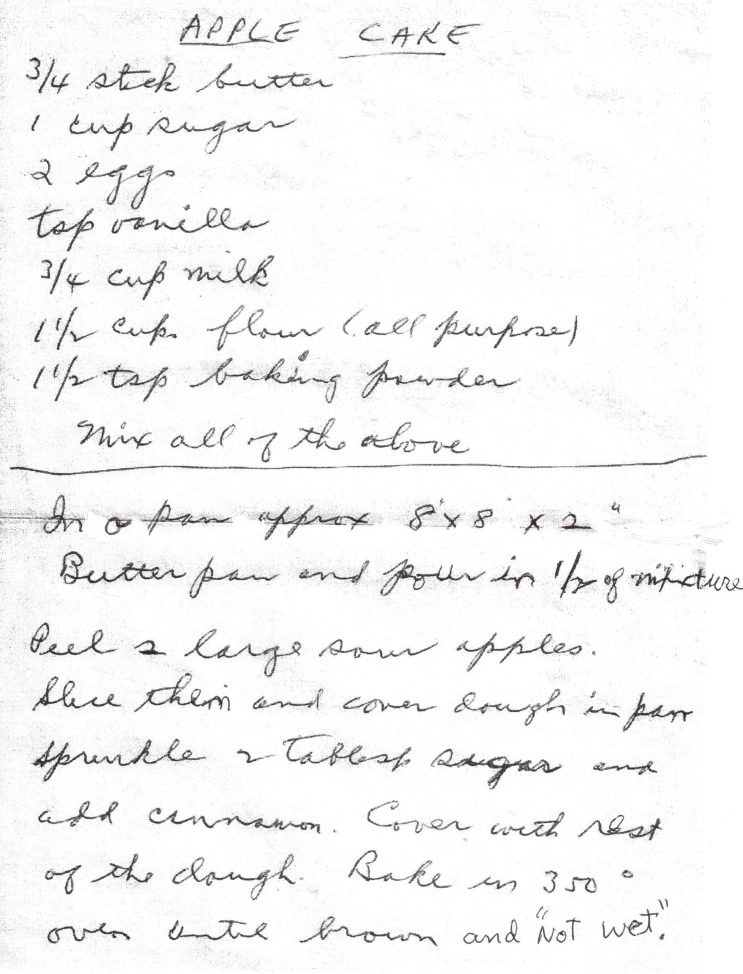 APPLE CAKE
3/4 stick butter
1 cup sugar
2 eggs
tsp vanilla
3/4 cup milk
1 1/2 cups flour (all purpose)
1 1/2 tsp baking powder
Mix all of the above
In a pan approx 8" x 8" x 2"
Butter pan and pour in 1/2 of mixture
Peel 2 large sour apples.
Slice them and cover dough in pan
Sprinkle 2 Tablesp sugar and
add cinnamon. Cover with rest
of the dough. Bake in 350°
oven until brown and "Not wet".